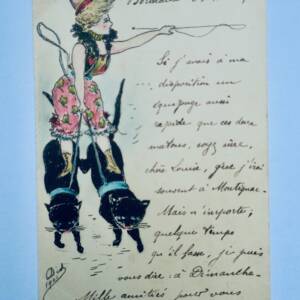 Bordeaux
Si j'avais à ma
disposition un
équipage aussi
rapide que ces deux
matous, soyez sûre,
chère Louise, que j'irai
souvent à Montignac.
Mais n'importe,
quelque temps
qu'il fasse, je puis
vous dire : à Dimanche.
Mille amitiés pour vous